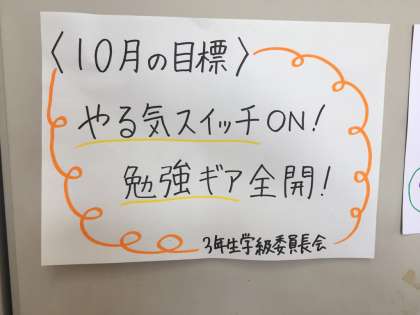 〈10月の目標〉
やる気スイッチON!
勉強ギア全開!
3年生学級委員長会